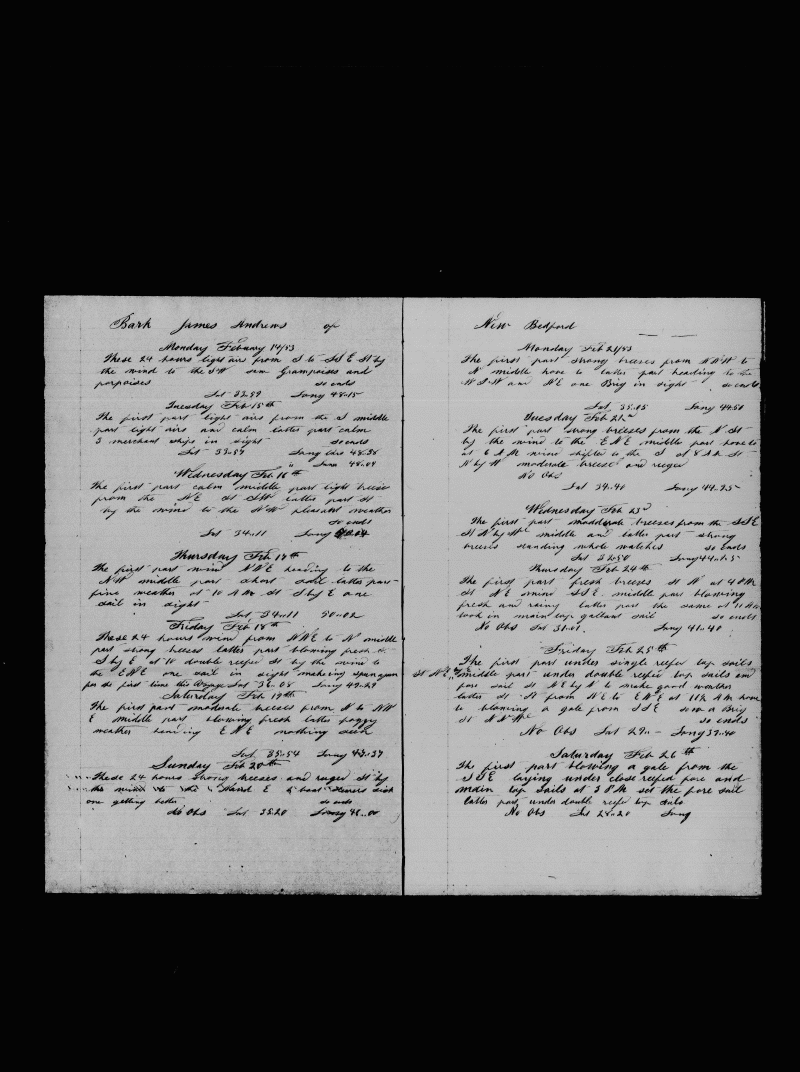 Bark James Andrews of
Monday Febuary 14/53
These 24 hours light airs from S to SSE St by
the wind to the SW saw Grampoises and
porpoises so ends
Lat 33..59 Long 48..15
Tuesday Feb 15th
The first part light airs from the S middle
part light airs and calm latter part calm
3 merchant ships in sight so ends
Lat 33..57 Long
Wednesday Feb 16th
The first part calm middle part light breese
from the NE St SW latter part St
by the wind to the NW pleasant weather
so ends
Lat 34..11 Long
Thursday Feb 17th
The first part wind NNE heading to the
NW middle part short sail latter part
fine weather at 10 AM St S by E one
sail in sight
Lat 34..11 50..02
Friday Feb 18th
These 24 hours wind from NNE to N middle
part strong breeses latter part blowing fresh
S by E at 10 double reefed St by the wind to
the ENE one sail in sight making
for the first time this Voyage Lat 36..08 Long 49..29
Saturday Feb 19th
The first part moderate breeses from N to NW
E middle part blowing fresh latter foggy
weather heading ENE nothing seen
Lat 35..54 Long 43..37
Sunday Feb 20th
These 24 hours strong breeses and ruged St by
the wind to the E 4 boat sick
one getting better so ends
No Obs Lat 35.20 Long 45..00
New Bedford
Monday Feb 21/53
The first part strong breeses from NNW to
N middle hove to latter part heading to the
WSW and NE one Brig in sight so ends
Lat 35..05 Long 44.50
Tuesday Feb 22
The first part strong breeses from the N St
by the wind to the ENE middle part hove to
at 6 AM wind shifted to the S at 8 AM St
N by W moderate breese and ruged
No Obs
Lat 34..40 Long 44..25
Wednesday Feb 23d
The first part modderate breeses from the SSE
St N by W middle and latter part strong
breeses standing whole watches so ends
Lat 32.50 Long 44..15
Thursday Feb 24th
The first part fresh breeses St N at 4 PM
St NE wind SSE middle part blowing
fresh and rainy latter part the same at 11 AM
took in main top gallant sail so ends
No Obs Lat 31..01 Long 41..40
Friday Feb 25th
The first part under single reefed top sails
middle part under double reefed top sails and
fore sail St NE by N to make good weather
latter St from NE to ENE at 11½ AM hove
to blowing a gale from SSE saw a Brig
St NNW so ends
No Obs Lat 29.. Long 37..40
Saturday Feb 26th
The first part blowing a gale from the
SSE laying under close reefed fore and
main top sails at 3 PM set the fore sail
latter part under double reefed top sails
No Obs Lat 28..20 Long